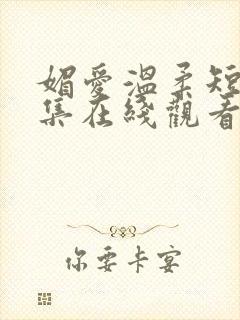 媚愛溫柔短
集在綫觀看
你要卡宴